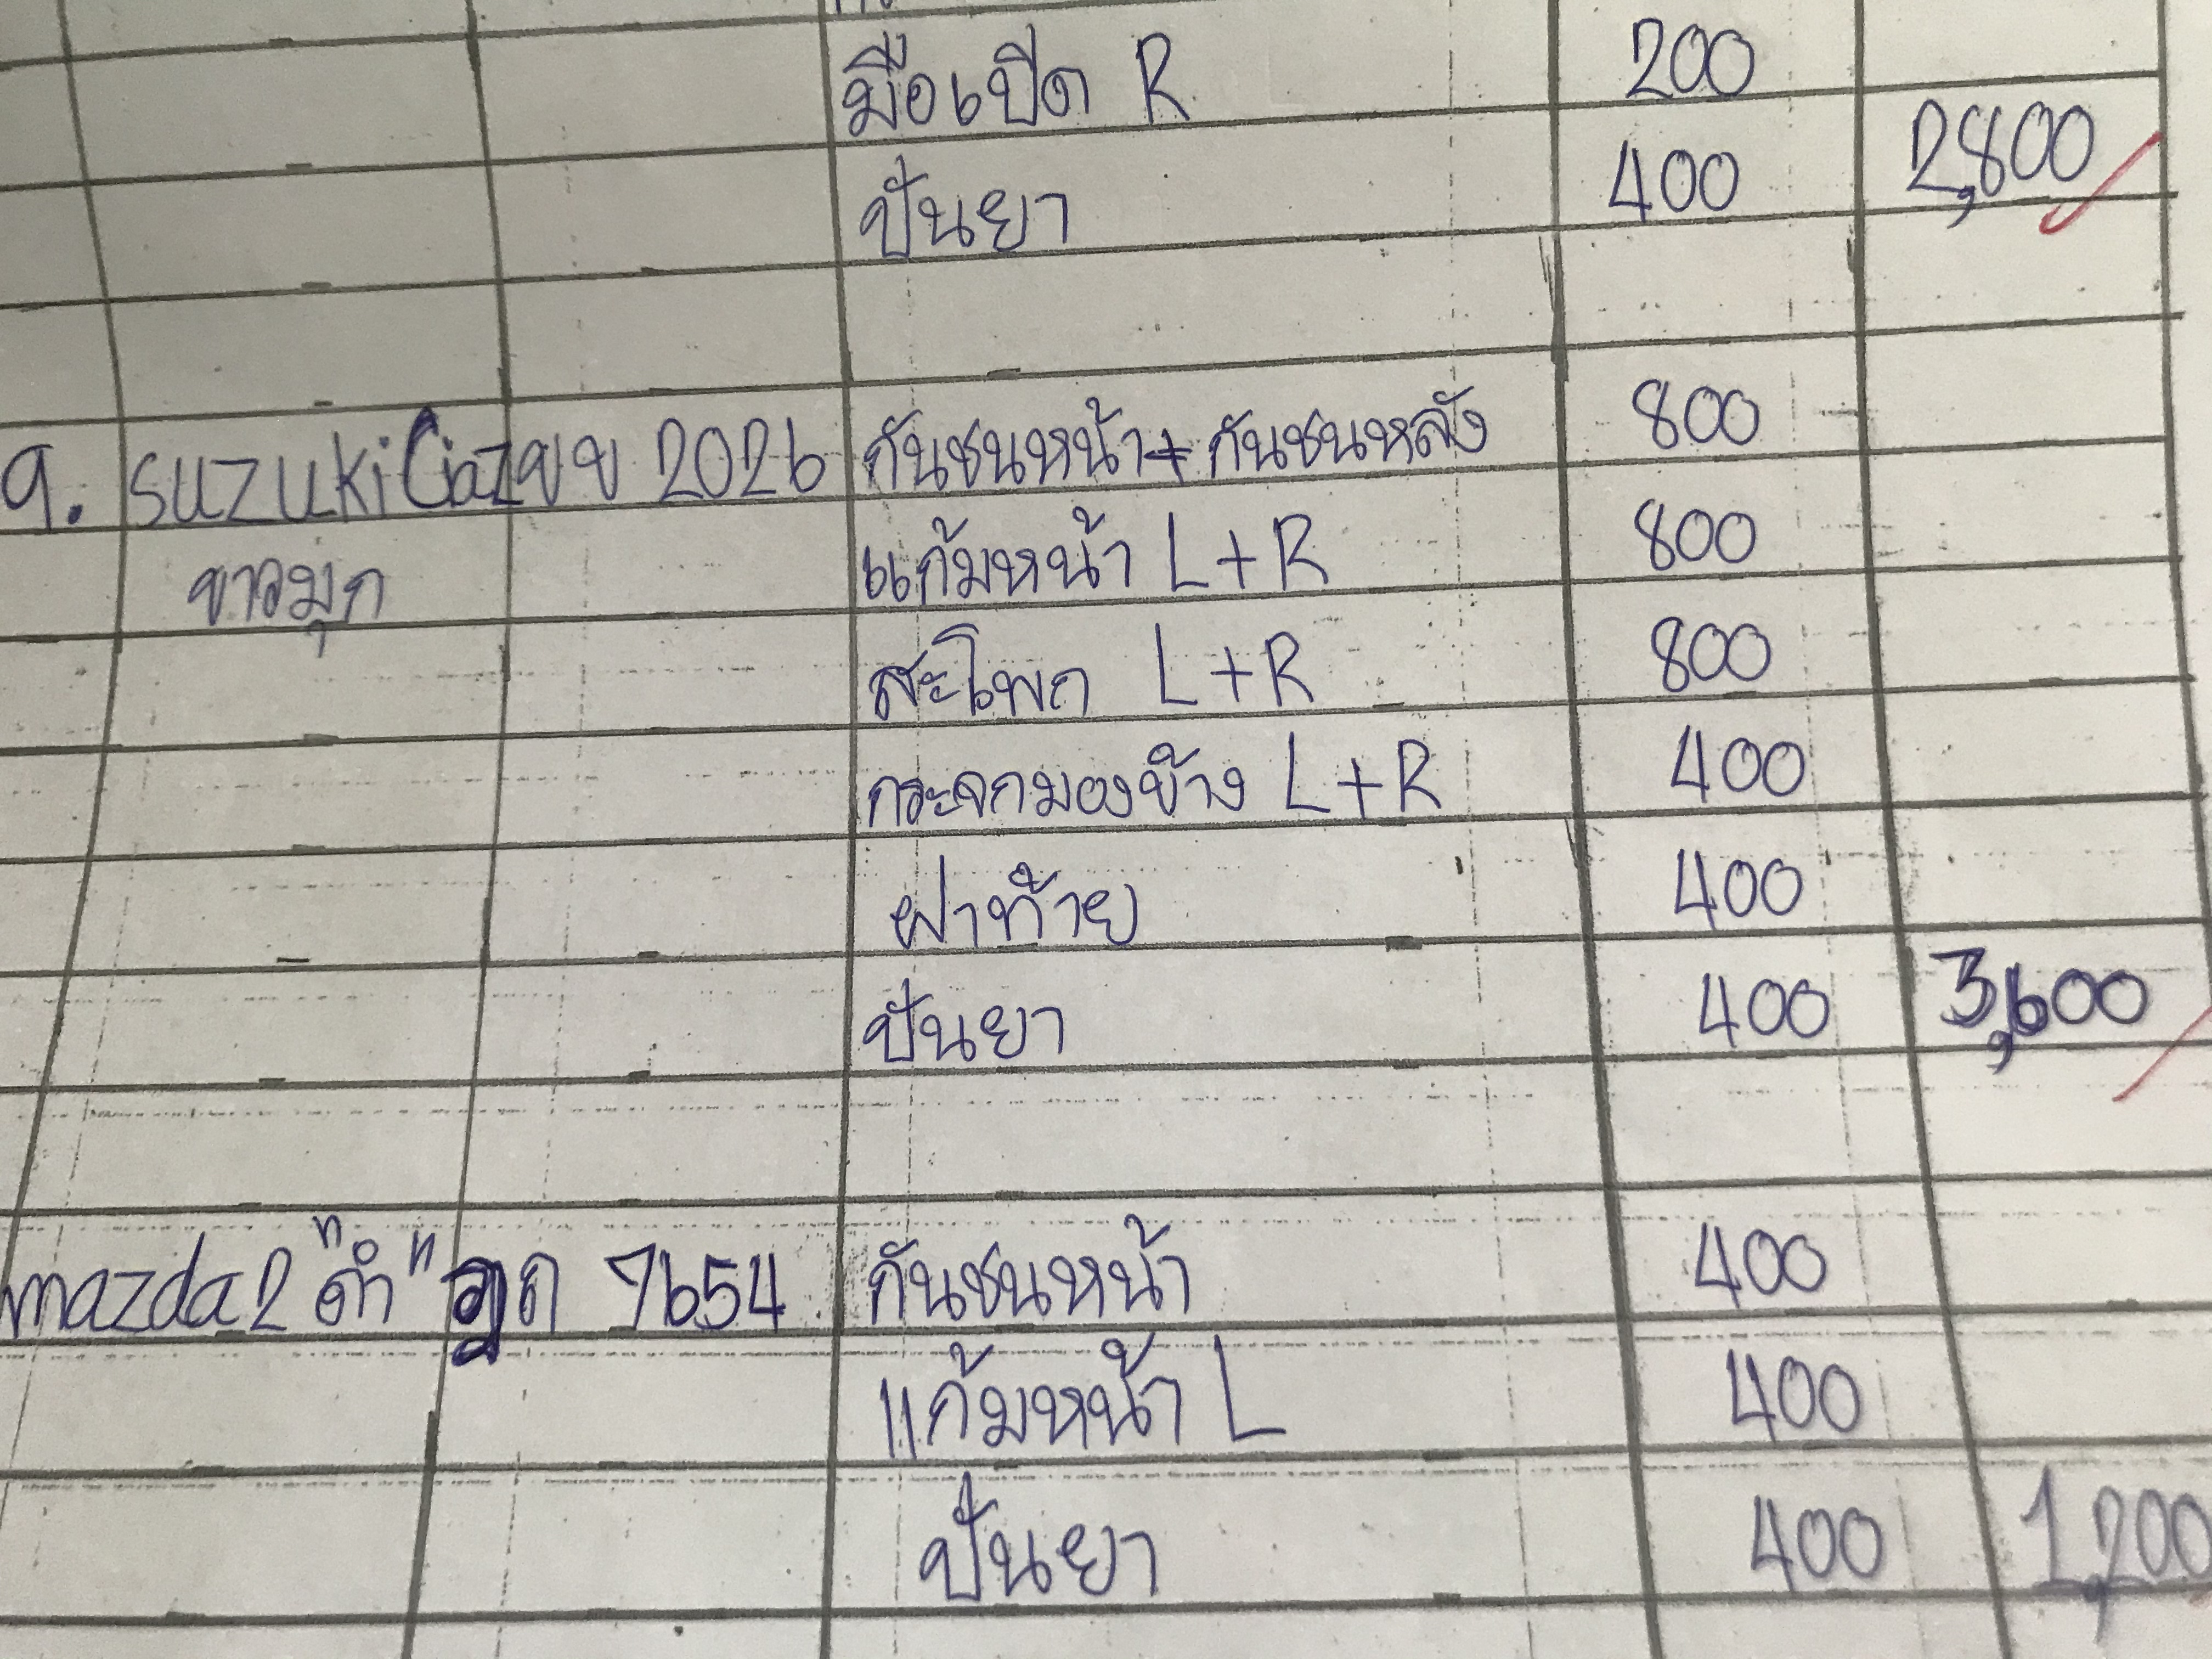 มือเปิด R 200
ปั่นยา 400 2,800
9. suzuki Ciaz ขข 2026 กันชนหน้า + กันชนหลัง 800
ขาวมุก แก้มหน้า L+R 800
สะโพก L+R 800
กระจกมองข้าง L+R 400
ฝาท้าย 400
ปั่นยา 400 3,600
mazda 2 "ดำ" ฎถ 7654 กันชนหน้า 400
แก้มหน้า L 400
ปั่นยา 400 1,200